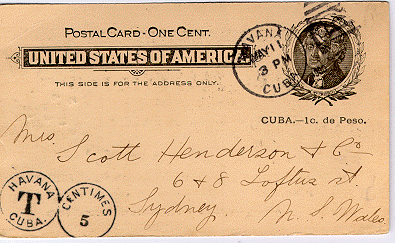 POSTAL CARD - ONE CENT.
UNITED STATES OF AMERICA
THIS SIDE IS FOR THE ADDRESS ONLY.
HAVANA
MAY 11
3 PM
CUBA
CUBA.—1c. de Peso.
Mrs.
Scott Henderson & Co
6 & 8 Loftus st.
Sydney. N. S. Wales
HAVANA
T
CUBA.
CENTIMES
5